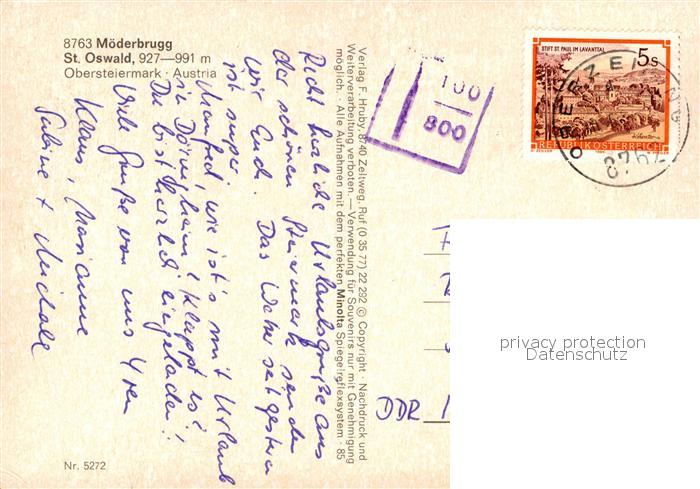 8763 Möderbrugg
St. Oswald, 927—991 m
Obersteiermark · Austria
Recht herzliche Urlaubsgrüße aus
der schönen Steiermark senden
wir Euch. Das Wetter seit gestern
ist super.
Manfred, wie ist's mit Urlaub
in Dörnigheim? Klappt es?
Du bist herzl. eingeladen!
Viele Grüße von uns 4ren
Klaus, Marianne
Sabine +
Nr. 5272
Verlag F. Hruby, 8740 Zeltweg, Ruf (0 35 77) 22 292 © Copyright · Nachdruck und
Weiterverarbeitung verboten. — Verwendung für Souvenirs nur mit Genehmigung
möglich. · Alle Aufnahmen mit dem perfekten Minolta Spiegelreflexsystem · 85
100
800
STIFT ST. PAUL IM LAVANTTAL
5s
REPUBLIK ÖSTERREICH
OBERZEI
8762
DDR
privacy protection
Datenschutz